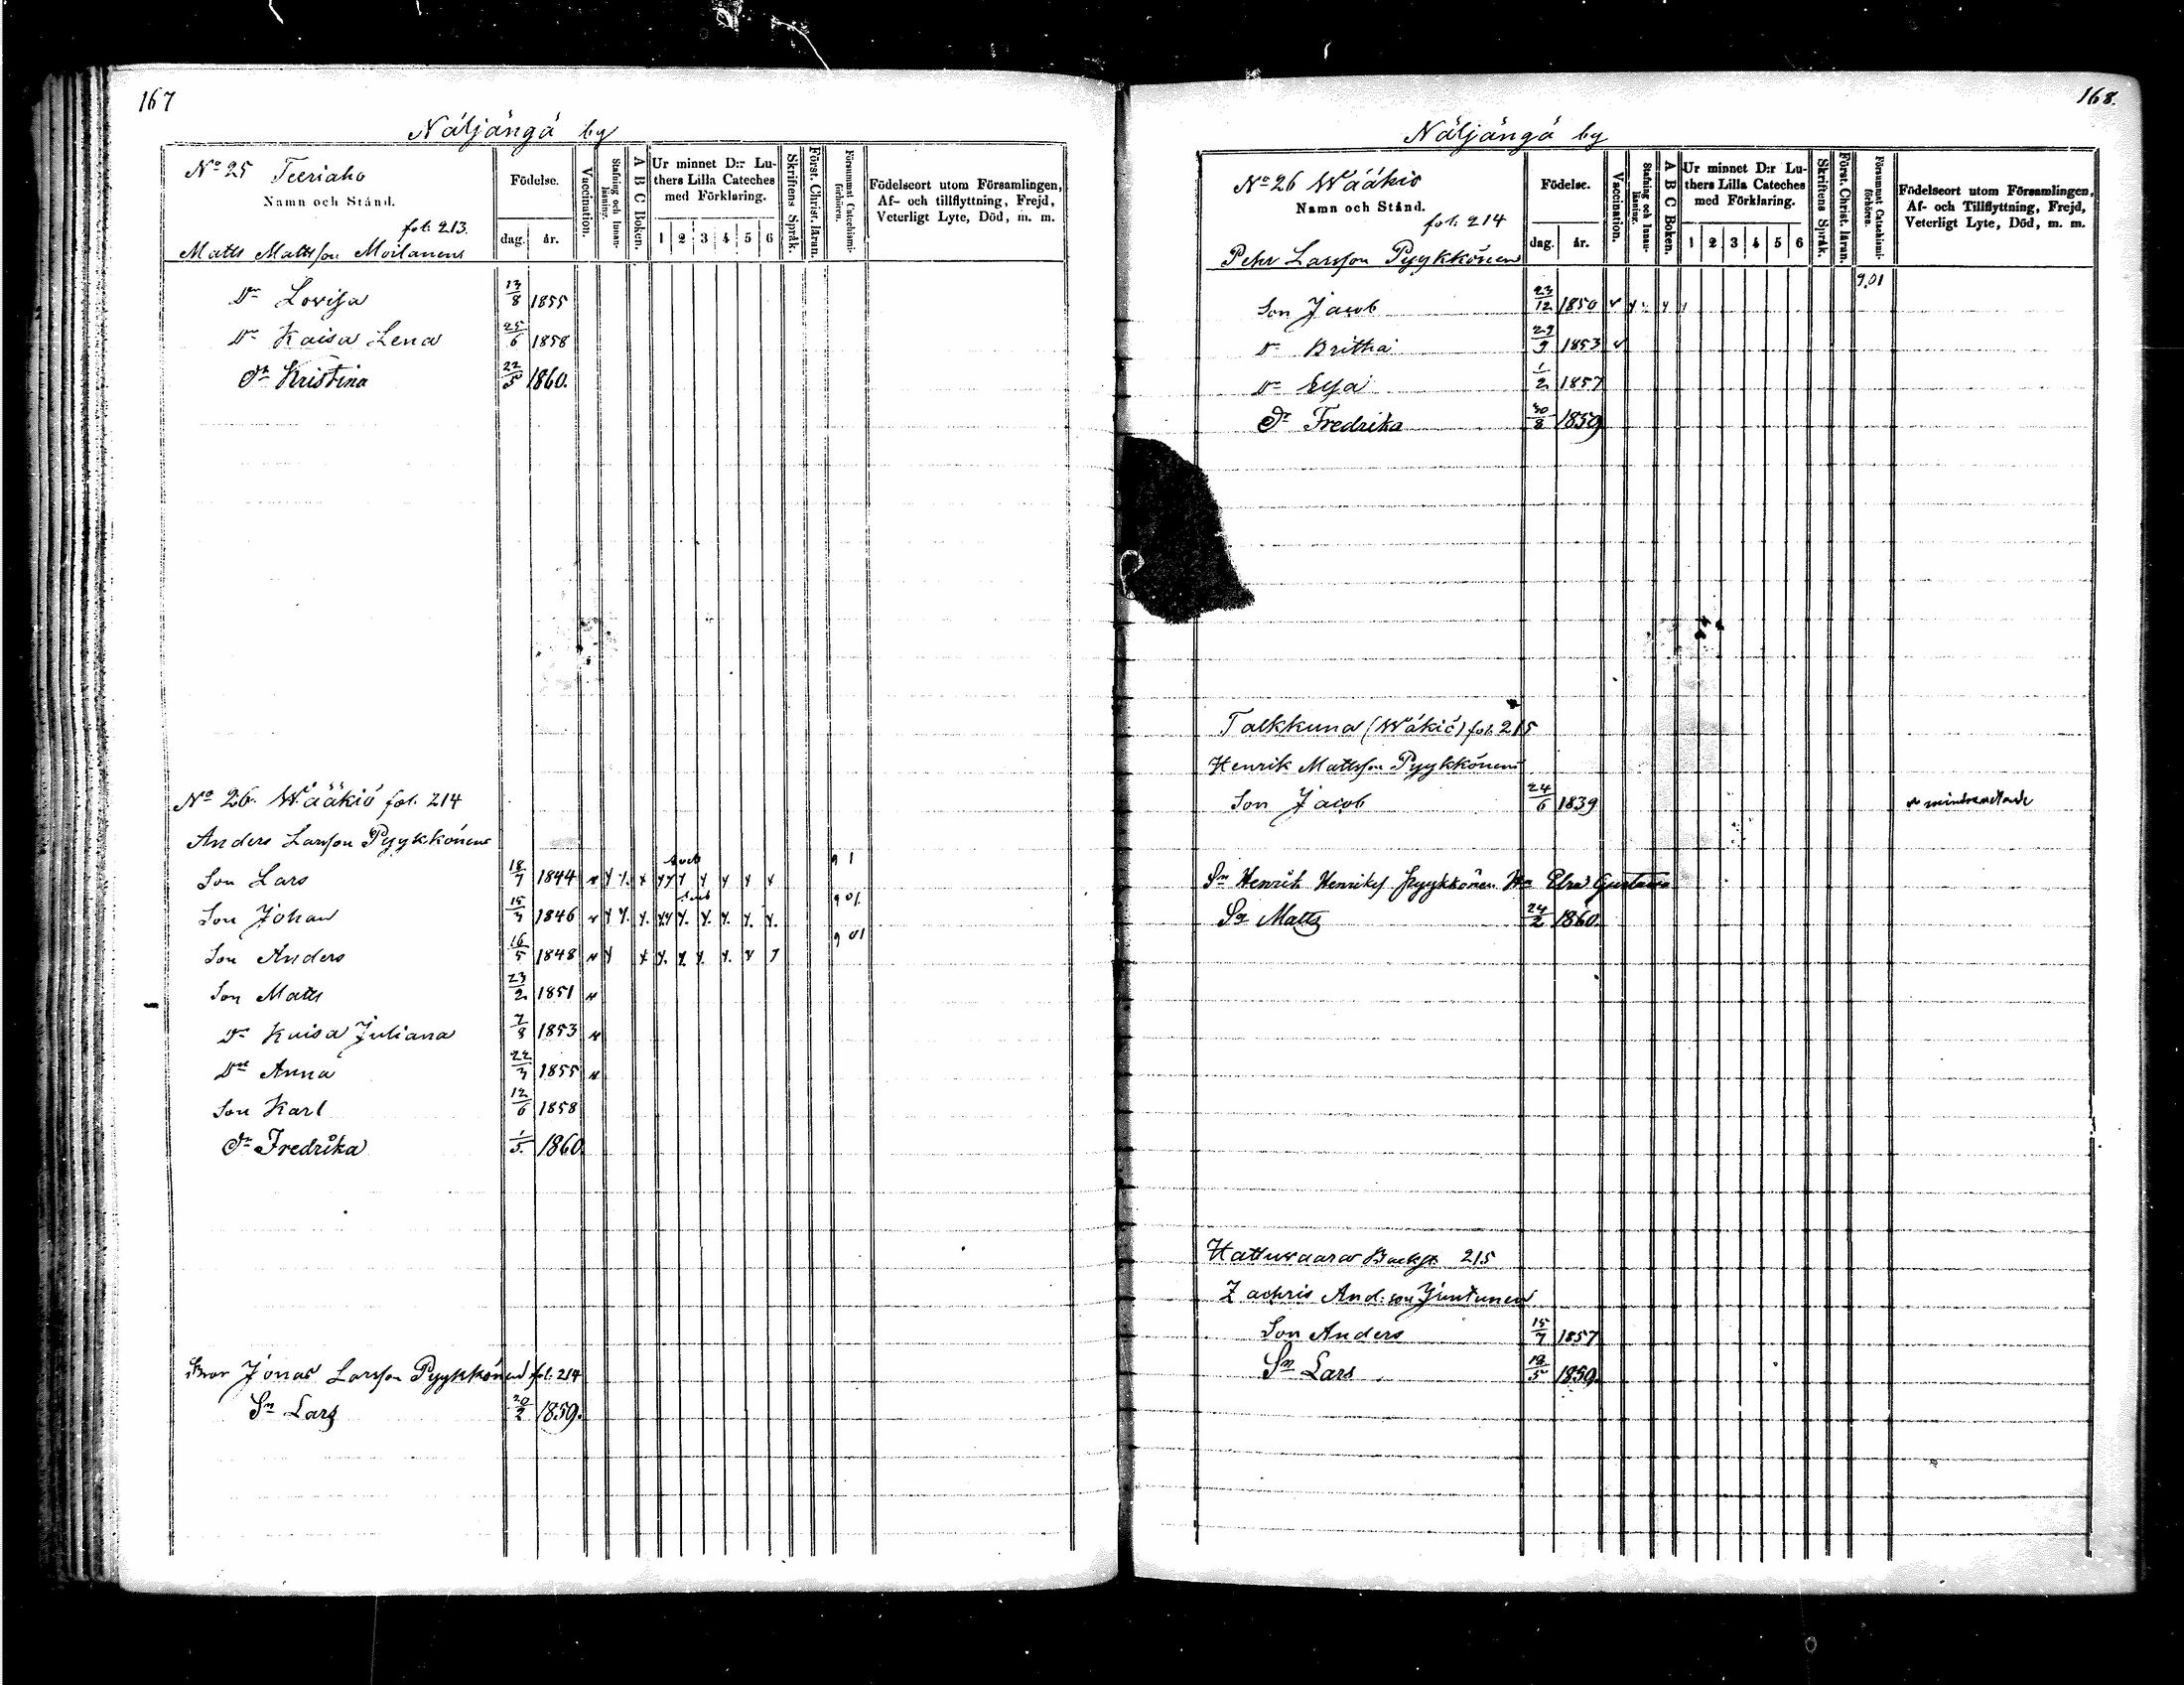 167
Näljängä by
No 25 Teeriaho
Namn och Stånd.
fol. 213.
Födelse.
dag. år.
Vaccination.
Stafning och Innanläsning.
A B C Boken.
Ur minnet D:r Luthers Lilla Cateches med Förklaring.
1 2 3 4 5 6
Skriftens Språk.
Först. Christ. läran.
Försummat Catechismiförhören.
Födelseort utom Församlingen, Af- och tillflyttning, Frejd, Veterligt Lyte, Död, m. m.
Matts Mattsson Moilanens
Dr Lovisa 13/8 1855
Dr Kaisa Lena 25/6 1858
Dr Kristina 22/5 1860.
No 26. Wääkiö fol. 214
Anders Larsson Pyykkönens
Son Lars 18/7 1844
Son Johan 15/3 1846
Son Anders 16/5 1848
Son Matts 23/2 1851
Dr Kaisa Juliana 7/8 1853
Dr Anna 22/3 1855
Son Karl 12/6 1858
Dr Fredrika 1/5. 1860
Bror Jonas Larsson Pyykkönens fol. 214
Sn Lars 20/2 1859.
168.
Näljängä by
No 26 Wääkiö
Namn och Stånd.
fol. 214
Födelse.
dag. år.
Vaccination.
Stafning och Innanläsning.
A B C Boken.
Ur minnet D:r Luthers Lilla Cateches med Förklaring.
1 2 3 4 5 6
Skriftens Språk.
Först. Christ. läran.
Försummat Catechismiförhören.
Födelseort utom Församlingen, Af- och Tillflyttning, Frejd, Veterligt Lyte, Död, m. m.
Pehr Larsson Pyykkönens
Son Jacob 23/12 1850
Dr Britha 29/9 1853
Dr Elsa 1/2 1857
Dr Fredrika 30/8 1859
Talkkuna (Wäkiö) fol. 215
Henrik Mattsson Pyykkönens
Son Jacob 24/6 1839
Sn Henrik Henriks. Pyykkönen Elsa Gustava
Sn Matts 24/2 1860.
Hattuwaara Backst. 215
Zachris And:son Juntunen
Son Anders 15/7 1857
Sn Lars 19/5 1859.